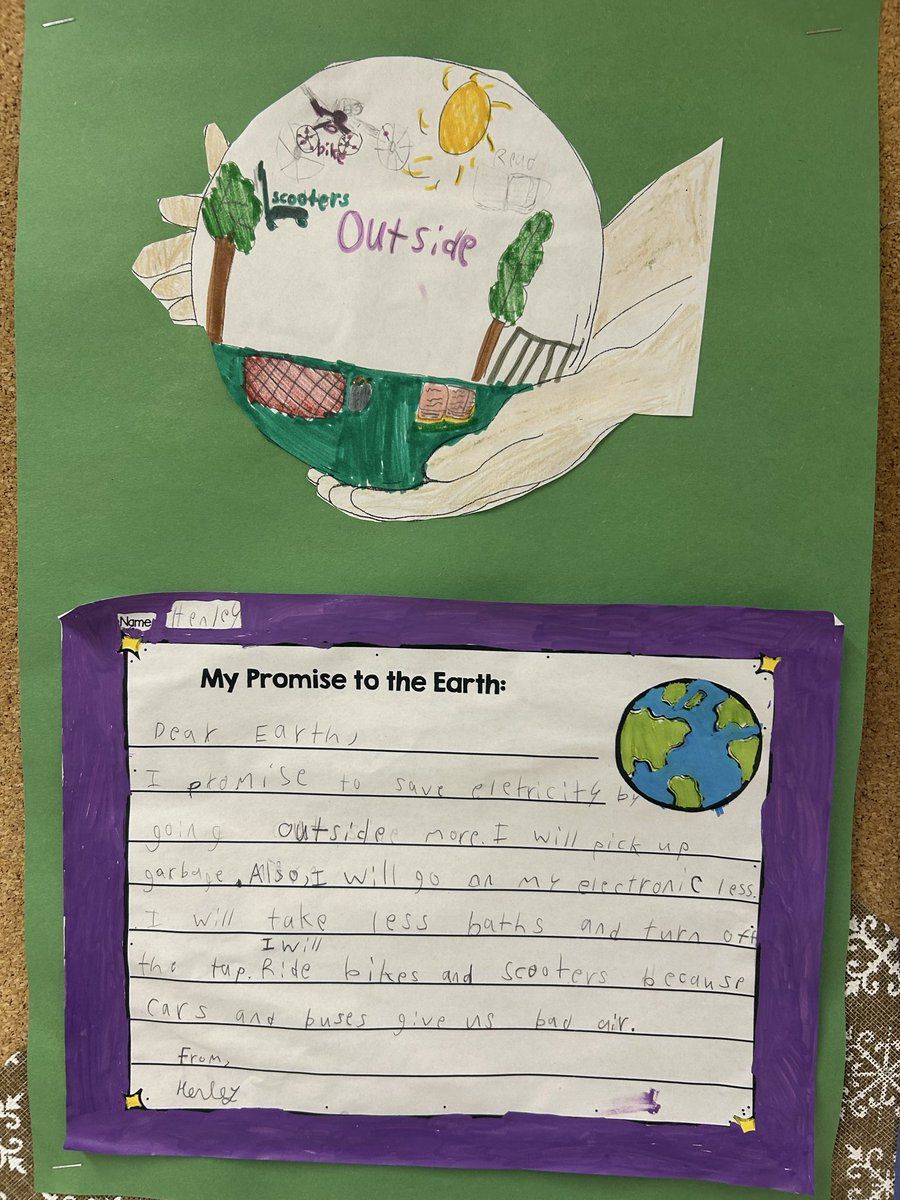 bike
Read
scooters
Outside
Name
Henley
My Promise to the Earth:
Dear Earth,
I promise to save eletricity by
going outside more. I will pick up
garbage. Also, I will go on my electronic less.
I will take less baths and turn off
I will
the tap. Ride bikes and scooters because
cars and buses give us bad air.
From,
Henley